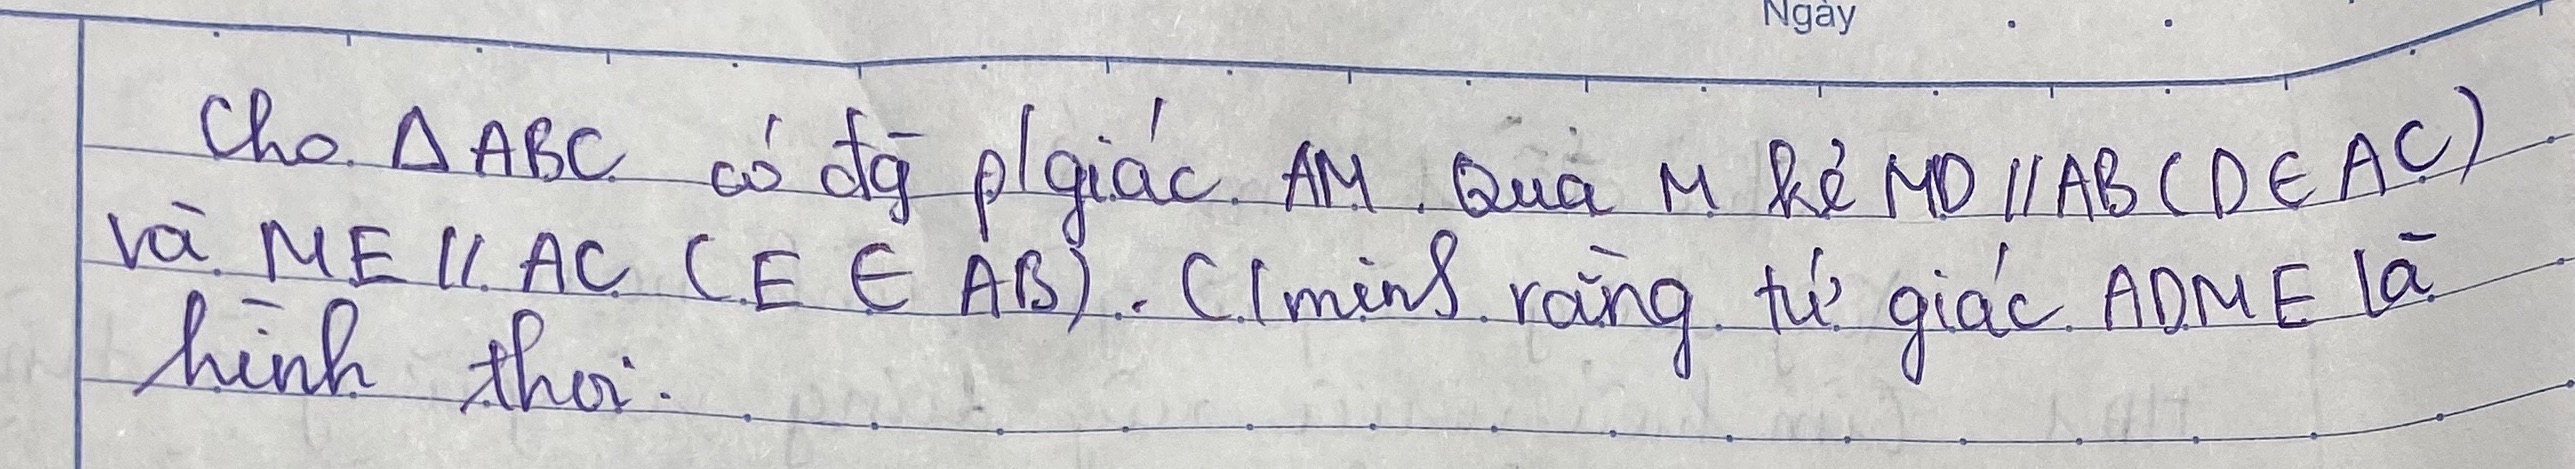 Ngày
Cho ΔABC có đg p/giác AM. Qua M kẻ MD // AB (D ∈ AC)
và ME // AC (E ∈ AB). C/minh rằng tứ giác ADME là
hình thoi.